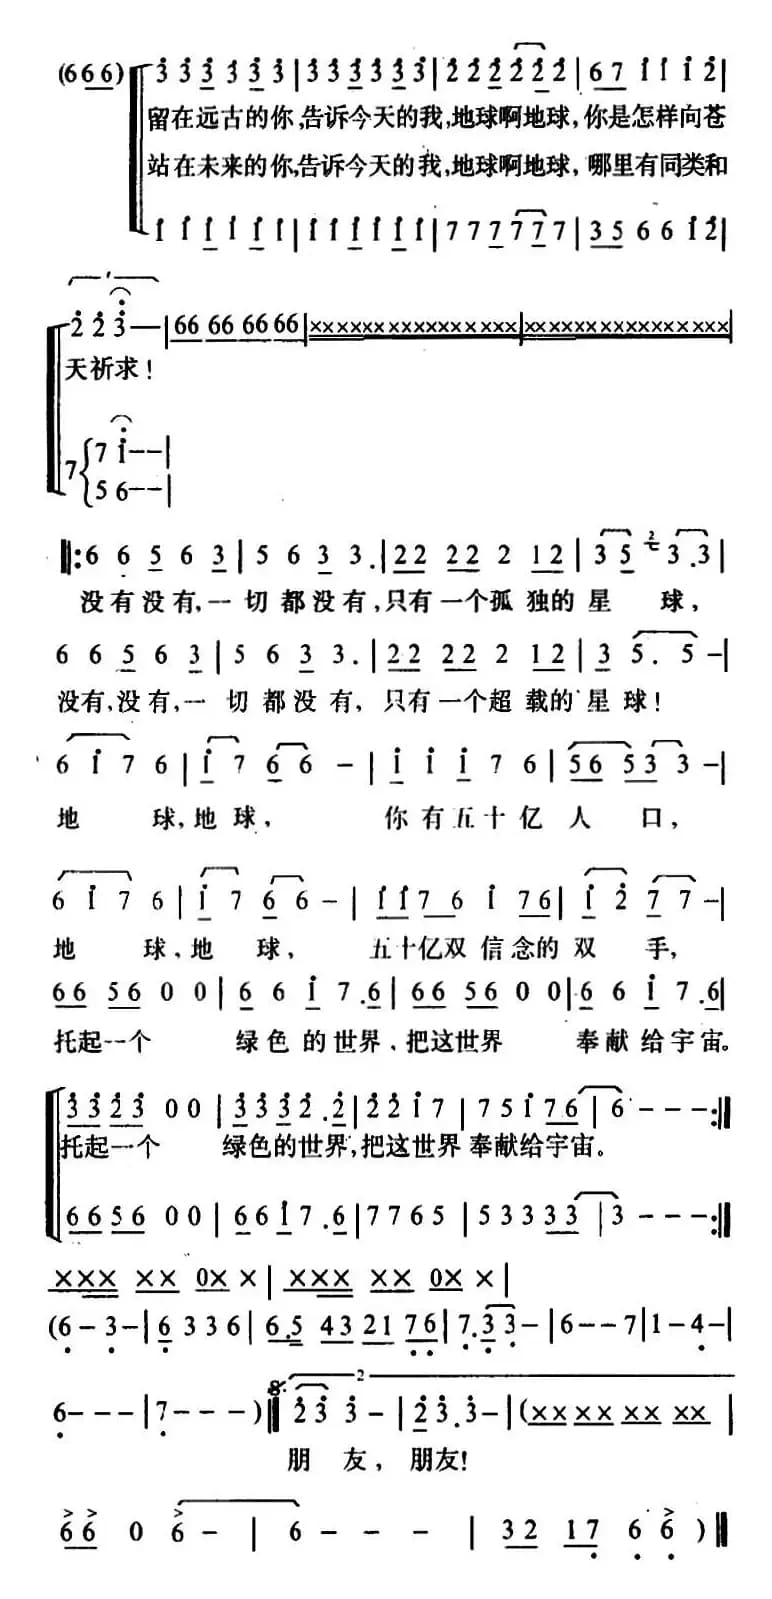 (666) 333 333|333 333|222222|67 11 12|
留在远古的你,告诉今天的我,地球啊地球,你是怎样向苍
站在未来的你,告诉今天的我,地球啊地球,哪里有同类和
111111|111111|777777|3566 12|
2 2 3—|66 66 66 66|×××××××××××××××|×××××××××××××××|
天祈求!
7 1--|
7
5 6--|
‖:6 6 5 6 3|5 6 3 3.|22 22 2 12|3 5 3 .3|
没有没有,一切都没有,只有一个孤独的星球,
6 6 5 6 3|5 6 3 3.|22 22 2 12|3 5. 5—|
没有,没有,一切都没有,只有一个超载的星球!
6 1 7 6|1 7 6 6 —|1 1 1 7 6|56 53 3—|
地球,地球,你有五十亿人口,
6 1 7 6|1 7 6 6 —|1 1 7 6 1 76|1 2 7 7—|
地球,地球,五十亿双信念的双手,
66 56 0 0|6 6 1 7.6|66 56 0 0|6 6 1 7.6|
托起一个 绿色的世界,把这世界 奉献给宇宙。
3323 0 0|3 3 3 2.2|2 2 1 7|7 5 1 76|6---:‖
托起一个 绿色的世界,把这世界奉献给宇宙。
6656 0 0|6 6 1 7.6|7 7 6 5|5 3 3 33|3---:‖
××× ×× 0× ×|××× ×× 0× ×|
(6-3-|6 3 3 6|6.5 43 21 76|7.3 3-|6--7|1-4-|
6---|7---)‖2 3 3-|2 3.3-|(×××× ×× ××|
2
朋友,朋友!
66 0 6-|6---|32 17 6 6)‖